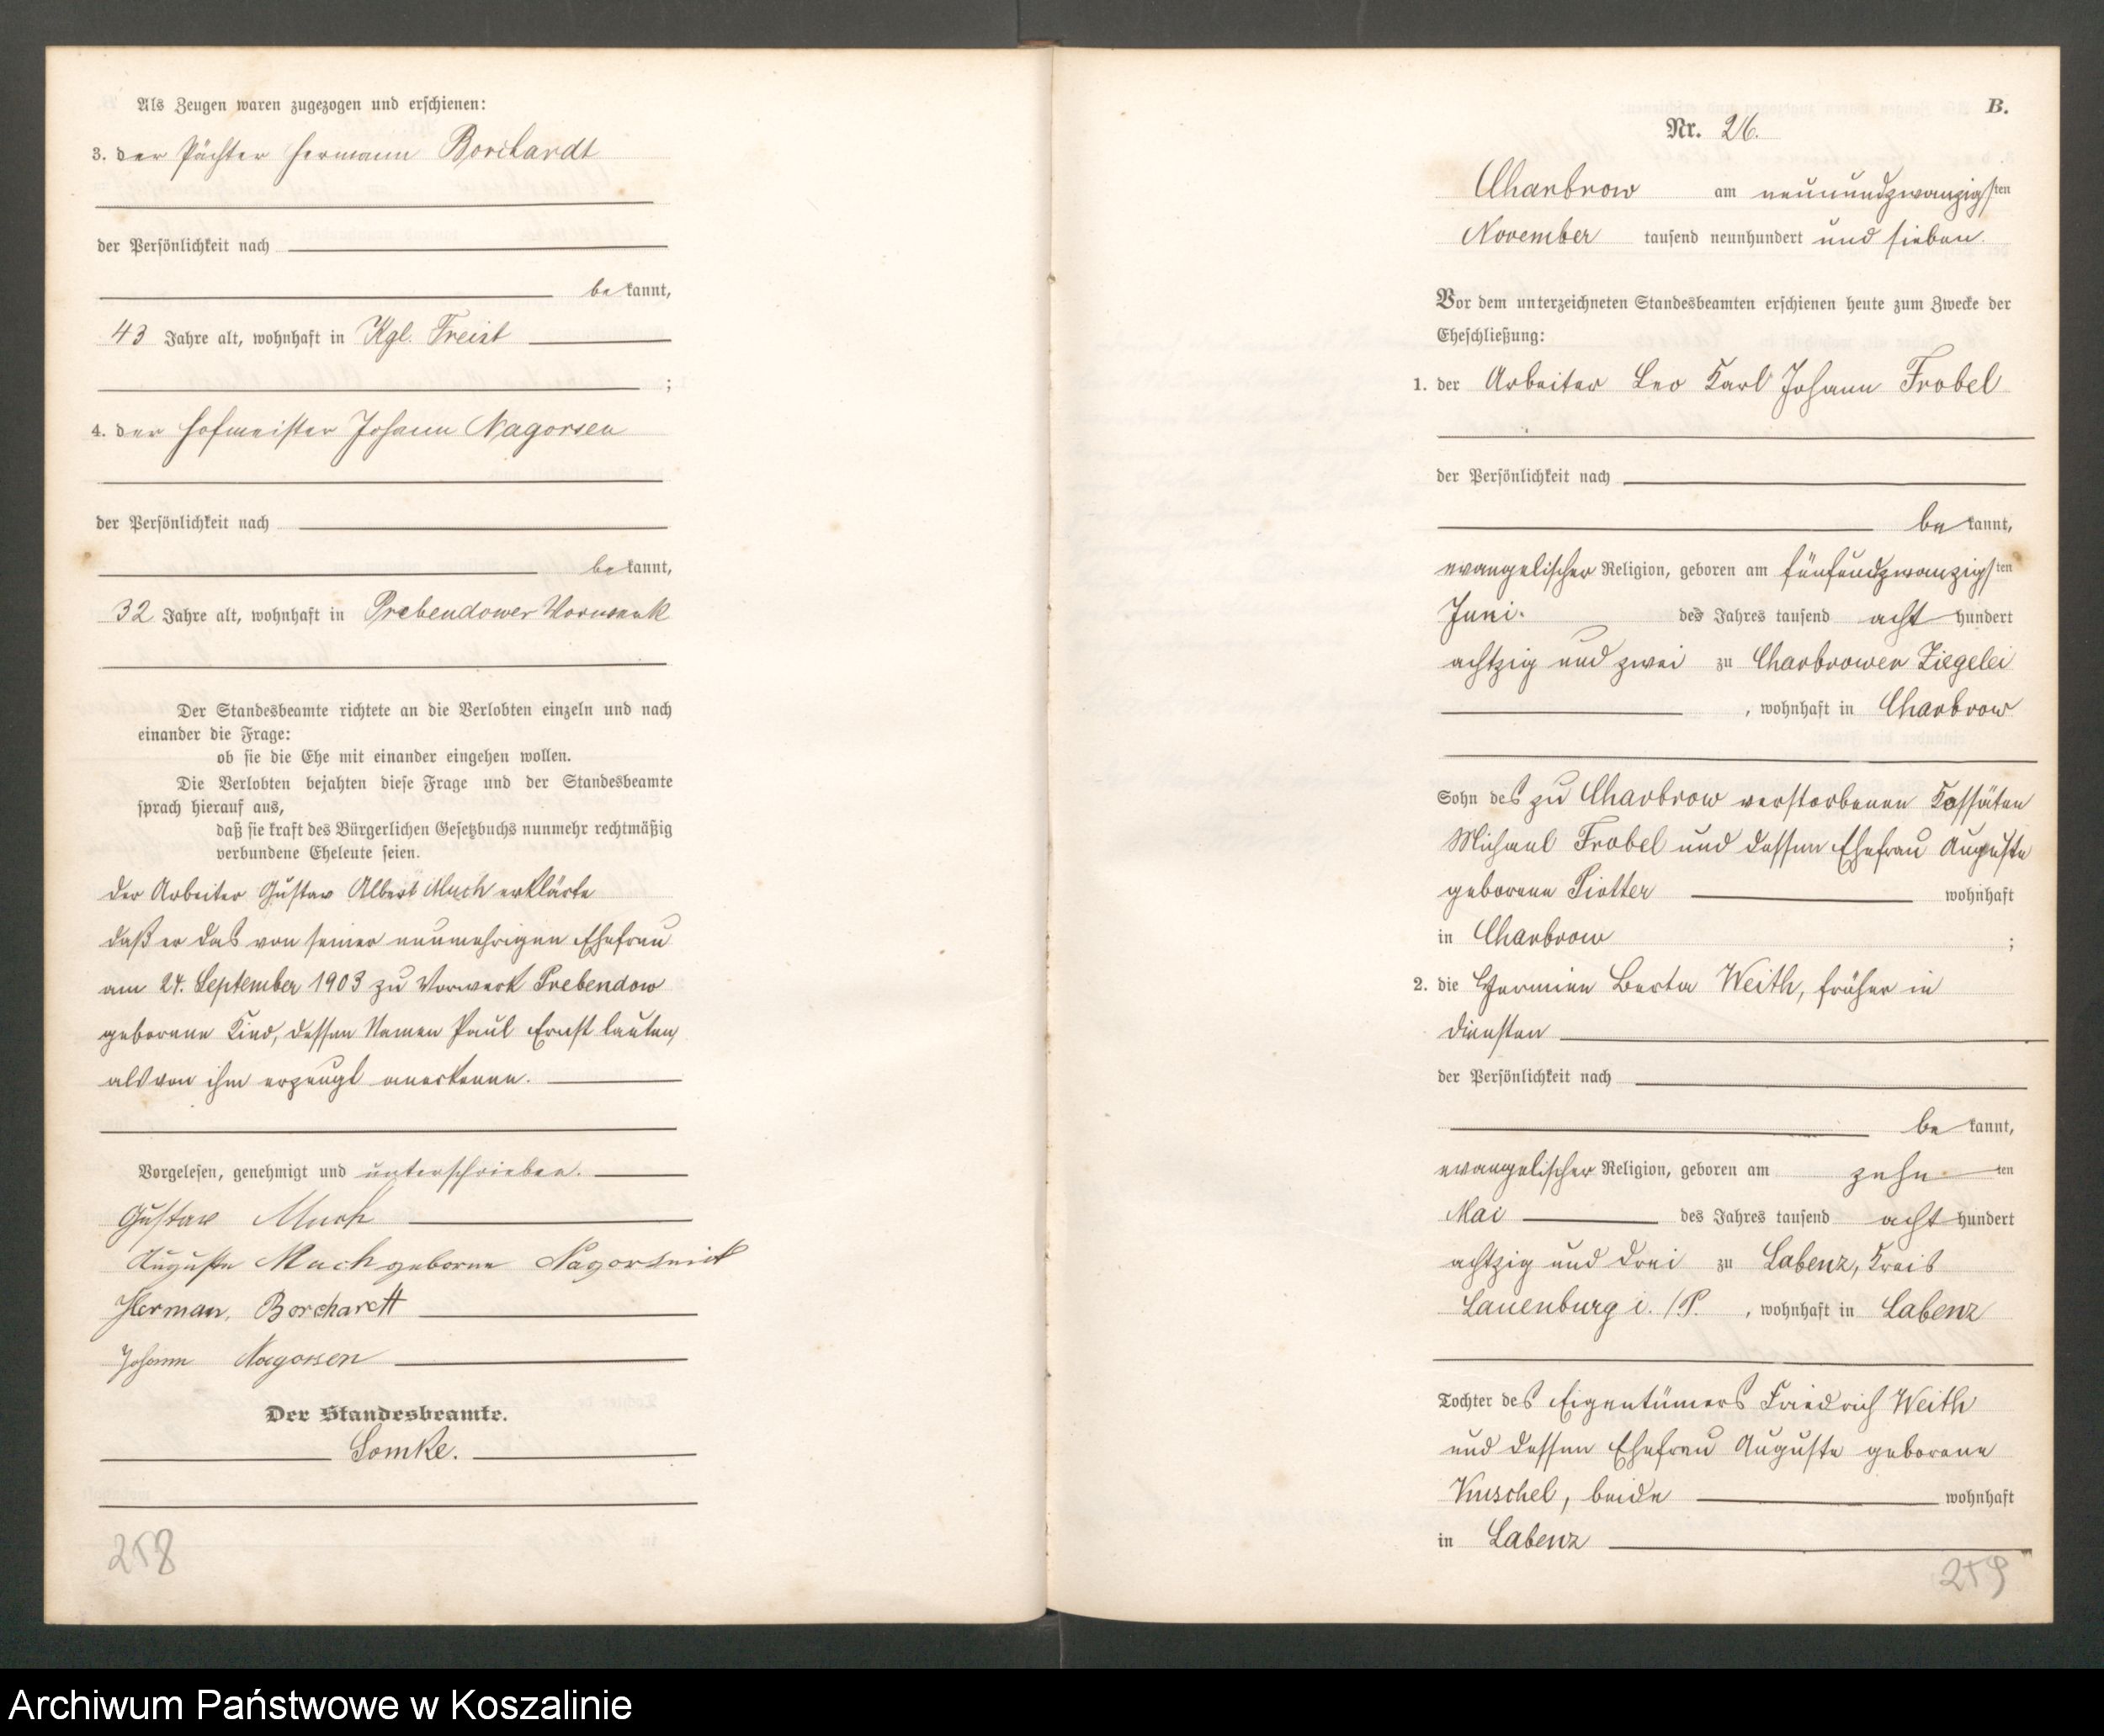 Als Zeugen waren zugezogen und erschienen:
3. der Pächter Hermann Borchardt
der Persönlichkeit nach
bekannt,
43 Jahre alt, wohnhaft in Kgl. Freist
;
4. der Hofmeister Johann Nagorsen
der Persönlichkeit nach
bekannt,
32 Jahre alt, wohnhaft in Prebendower Vorwerk
Der Standesbeamte richtete an die Verlobten einzeln und nach
einander die Frage:
ob sie die Ehe mit einander eingehen wollen.
Die Verlobten bejahten diese Frage und der Standesbeamte
sprach hierauf aus,
daß sie kraft des Bürgerlichen Gesetzbuchs nunmehr rechtmäßig
verbundene Eheleute seien.
Der Arbeiter Gustav Albert Much erklärte
daß er das von seiner nunmehrigen Ehefrau
am 24. September 1903 zu Vorwerk Prebendow
geborene Kind, dessen Namen Paul Ernst lauten,
als von ihm erzeugt anerkenne.
Vorgelesen, genehmigt und unterschrieben.
Gustav Much
Auguste Much geborne
Herman, Borchardt
Johann Nagorsen
Der Standesbeamte.
Lomke.
258
B.
Nr. 26.
Charbrow am neunundzwanzigsten
November tausend neunhundert und sieben.
Vor dem unterzeichneten Standesbeamten erschienen heute zum Zwecke der
Eheschließung:
1. der Arbeiter Leo Karl Johann Frobel
der Persönlichkeit nach
bekannt,
evangelischer Religion, geboren am fünfundzwanzigsten
Juni des Jahres tausend achthundert
achtzig und zwei zu Charbrower Ziegelei
, wohnhaft in Charbrow
Sohn des zu Charbrow verstorbenen Kossäten
Michael Frobel und dessen Ehefrau Auguste
geborene Piotter wohnhaft
in Charbrow ;
2. die Hermine Berta Weith, früher in
Diensten
der Persönlichkeit nach
bekannt,
evangelischer Religion, geboren am zehnten
Mai des Jahres tausend achthundert
achtzig und drei zu Labenz, Kreis
Lauenburg i./P. , wohnhaft in Labenz
Tochter des Eigentümers Friedrich Weith
und dessen Ehefrau Auguste geborene
Kuschel, beide wohnhaft
in Labenz
259
Archiwum Państwowe w Koszalinie